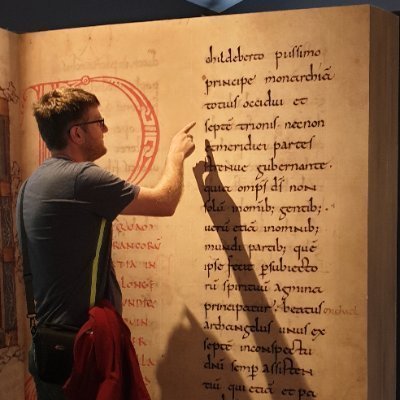 RANCORŪ
TIA IN
LONGE
childeberto piissimo
principe monarchiā
totius occidui et
septē trionis · necnon
meridiei partes
strenue gubernante ·
quia omips dī non
solū inomnib; gentib; ·
uerū etiā inomnib;
mundi partib; quē
ipse fecit psubiecto
rū spirituū agmina
principatur · beatus michael
archangelus unus ex
septē inconspectu
dnī semp assisten
tiū qui etiā et pa